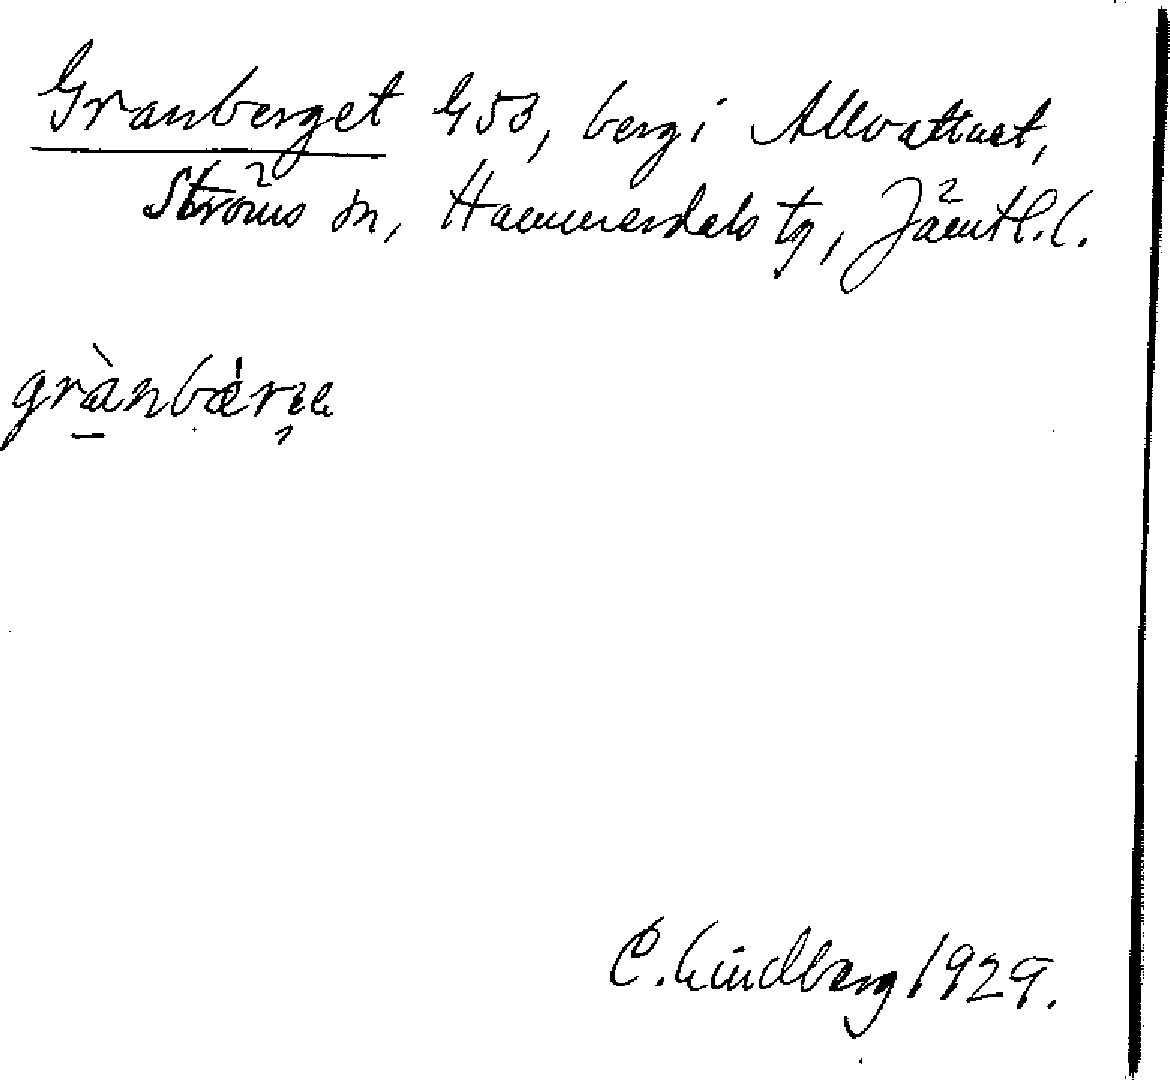 Granberget GSB, berg i Allvattnet,
Ströms sn, Hammerdals tg, Jämtl. l.
grànbæ̀rjə
C. Lindberg 1929.